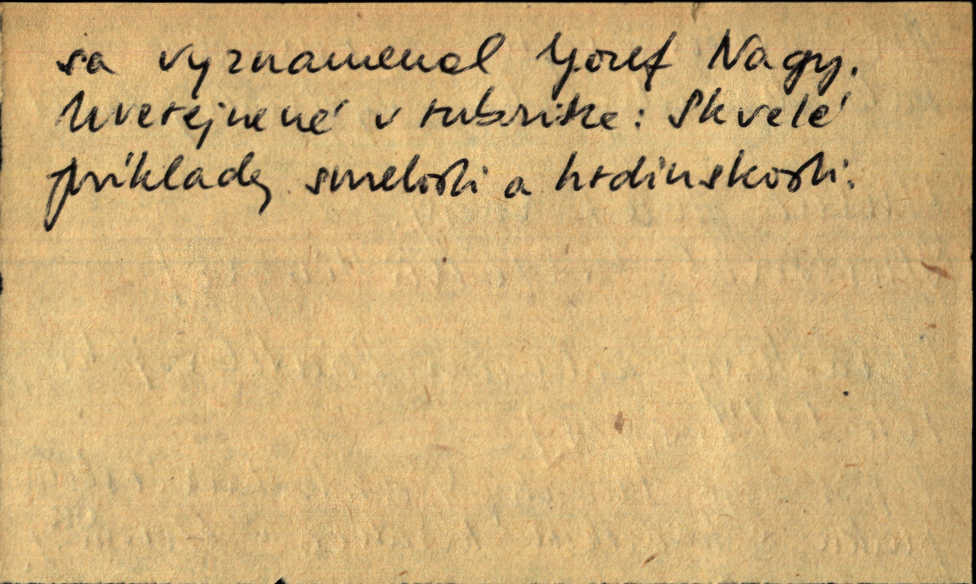 sa vyznamenal Jozef Nagy.
Uverejnené v rubrike: Skvelé
príklady smelosti a hrdinskosti.